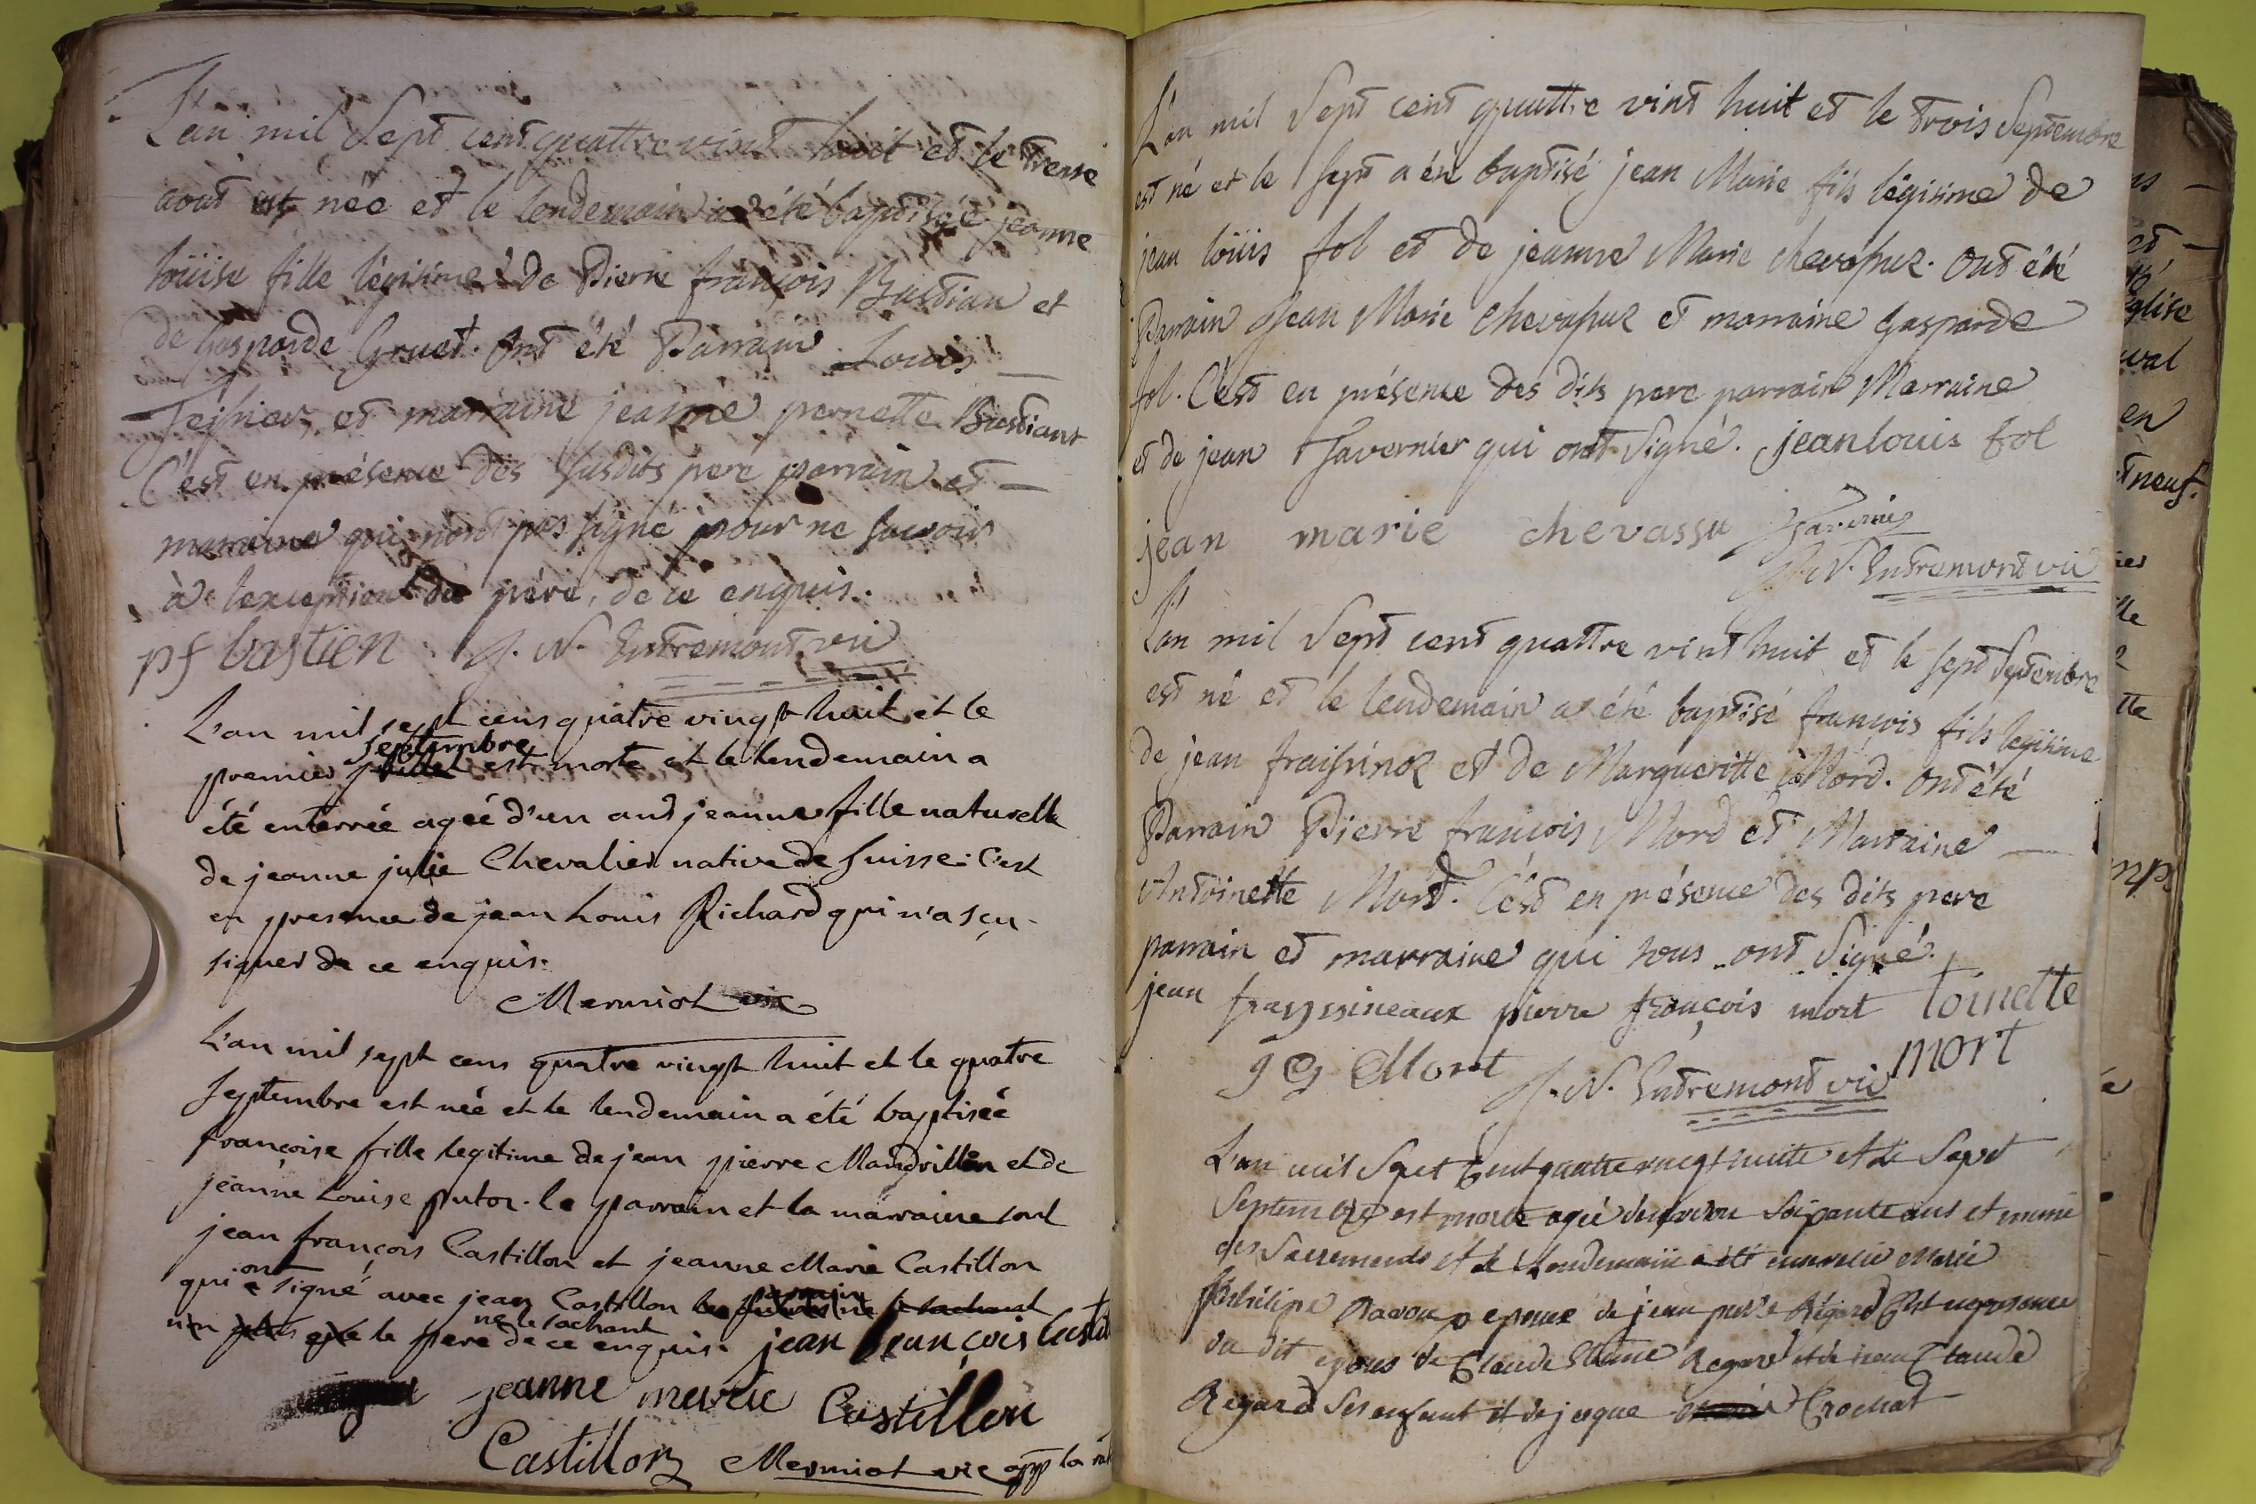 L'an mil Sept cent quattre vint huit et le treise
aout est née et le lendemain a été baptisée jeanne
loüise fille légitime de Pierre françois Bastian et
de Gasparde Gruet. Ont été Parrain Louis
et marraine jeanne pernette Bastiant
C'est en présence des susdits pere parrain et
marraine qui n'ont pas signé pour ne savoir
à l'exception du pére, de ce enquis.
pf bastien J. N. Entremont vic
L'an mil sept cens quatre vingt huit et le
septembre
premier juillet est morte et le lendemain a
été enterrée agée d'un and jeanne fille naturelle
de jeanne julie Chevalier native de Suisse. C'est
en presence de jean Louis Richard qui n'a sçu
signer de ce enquis.
Mermiot vic
L'an mil sept cens quatre vingt huit et le quatre
Septembre est née et le lendemain a été baptiseé
françoise fille legitime de jean pierre Mandrillon et de
jeanne Louise putoz. le parrain et la marraine sont
jean françois Castillon et jeanne Marie Castillon
ont parrain
qui a signé avec jean Castillon les ne le sachant
ne le sachant
le pere de ce enquis. jean françois Castil
jeanne marie Castillon
Castillon Mermiot vic app la
L'an mil Sept cent quattre vint huit et le trois Septembre
est né et le sept a été baptisé jean Marie fils légitime de
jean loüis fol et de jeanne Marie chevassuz. Ont été
Parrain Jean Marie chevassuz et marraine Gasparde
fol. C'est en présence des dits pere parrain Marraine
et de jean Tavernier qui ont Signé. jean louis fol
jean marie chevassu Tavernier
J. N. Entremont vic
L'an mil Sept cent quattre vint huit et le sept Septembre
est né et le lendemain a été baptisé francois fils legitime
de jean fraissinoz et de Margueritte Mord. Ont été
Parrain Pierre francois Mord et Marraine
Antoinette Mord. C'est en présence des dits pere
parrain et marraine qui tous ont Signé.
jean frayssineaux pierre françois mort toinette
mort
J. N. Entremont vic
L'an mil Sept Cent quatre vingt huite et le Sept
Septembre est morte agée denviron Soixante ans et munie
des Sacrements et le Lendemain a été enterrée Marie
philipe epouse de jean Régard C'est en presence
du dit epous de Claude Regard et de jean Claude
Regard Ses enfant et de jaque Crochat